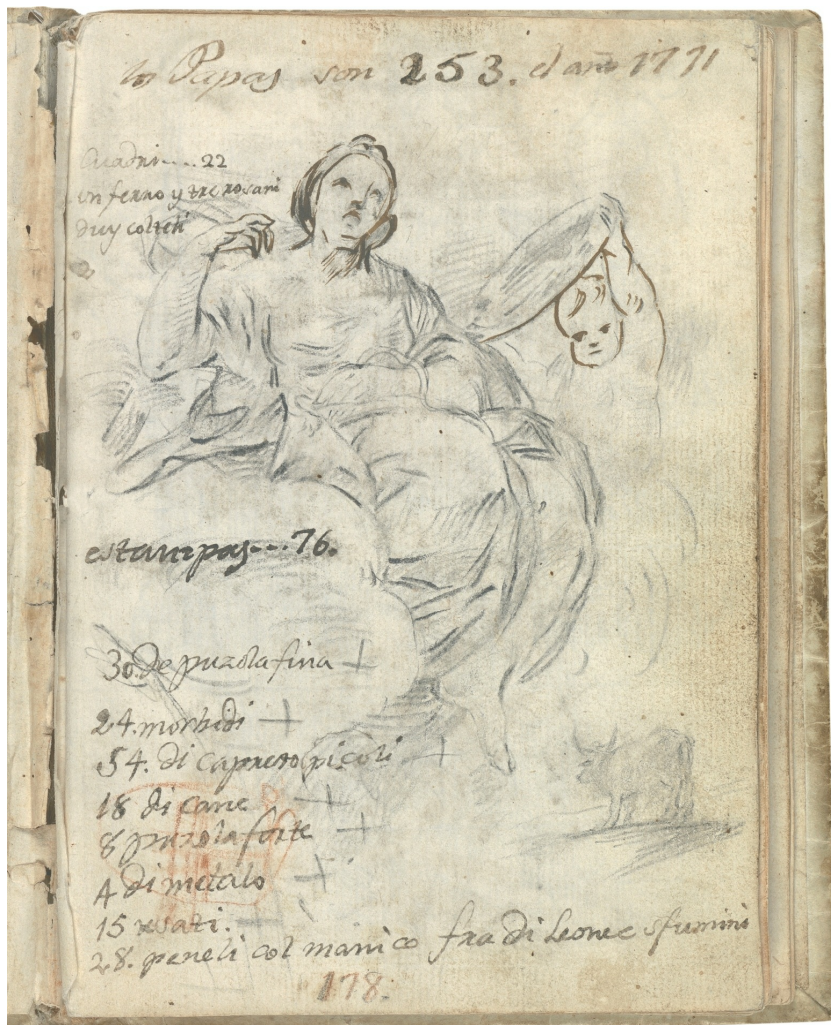 los Papas son 253. el año 1771
Cuadri.... 22
un ferro y tre rosari
duy colteli
estampas... 76.
30. de puzola fina +
24. morbidi +
54. di capreto picoli +
18 di cane +
8 puzola forte +
4 di metalo +
15 usati. +
28. peneli col manico fra di Leone e sfumini
178.